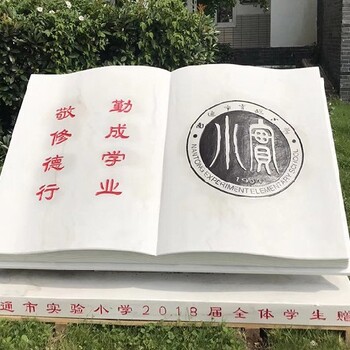 勤成学业
敬修德行
實小
NANTONG EXPERIMENT ELEMENTARY SCHOOL
通市实验小学2018届全体学生赠